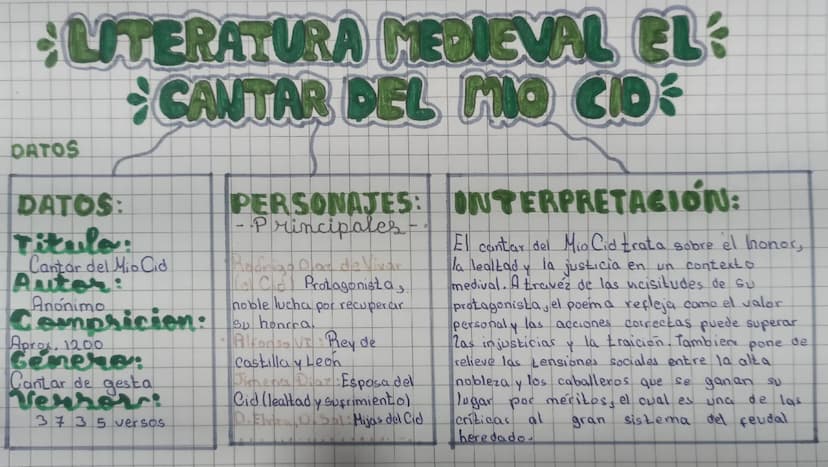 LITERATURA MEDIEVAL EL
CANTAR DEL MIO CID
DATOS
DATOS:
Titulo:
Cantar del Mio Cid
Autor:
Anónimo
Compsicion:
Aprox. 1200
Género:
Cantar de gesta
Versos:
3735 versos
PERSONAJES:
- Principales -
Rodrigo Díaz de Vivar
(el Cid) Protagonista,
noble lucha por recuperar
su honrra.
Alfonso VI: Rey de
Castilla y León
Jimena Díaz: Esposa del
Cid (lealtad y sufrimiento)
D. Elvira, D. Sol: Hijas del Cid
INTERPRETACIÓN:
El cantar del Mio Cid trata sobre el honor,
la lealtad y la justicia en un contexto
medival. A travéz de las vicisitudes de su
protagonista, el poema refleja como el valor
personal y las acciones correctas puede superar
las injusticias y la traición. Tambien pone de
relieve las tensiones sociales entre la alta
nobleza y los caballeros que se ganan su
lugar por meritos, el cual es una de las
criticas al gran sistema del feudal
heredado.